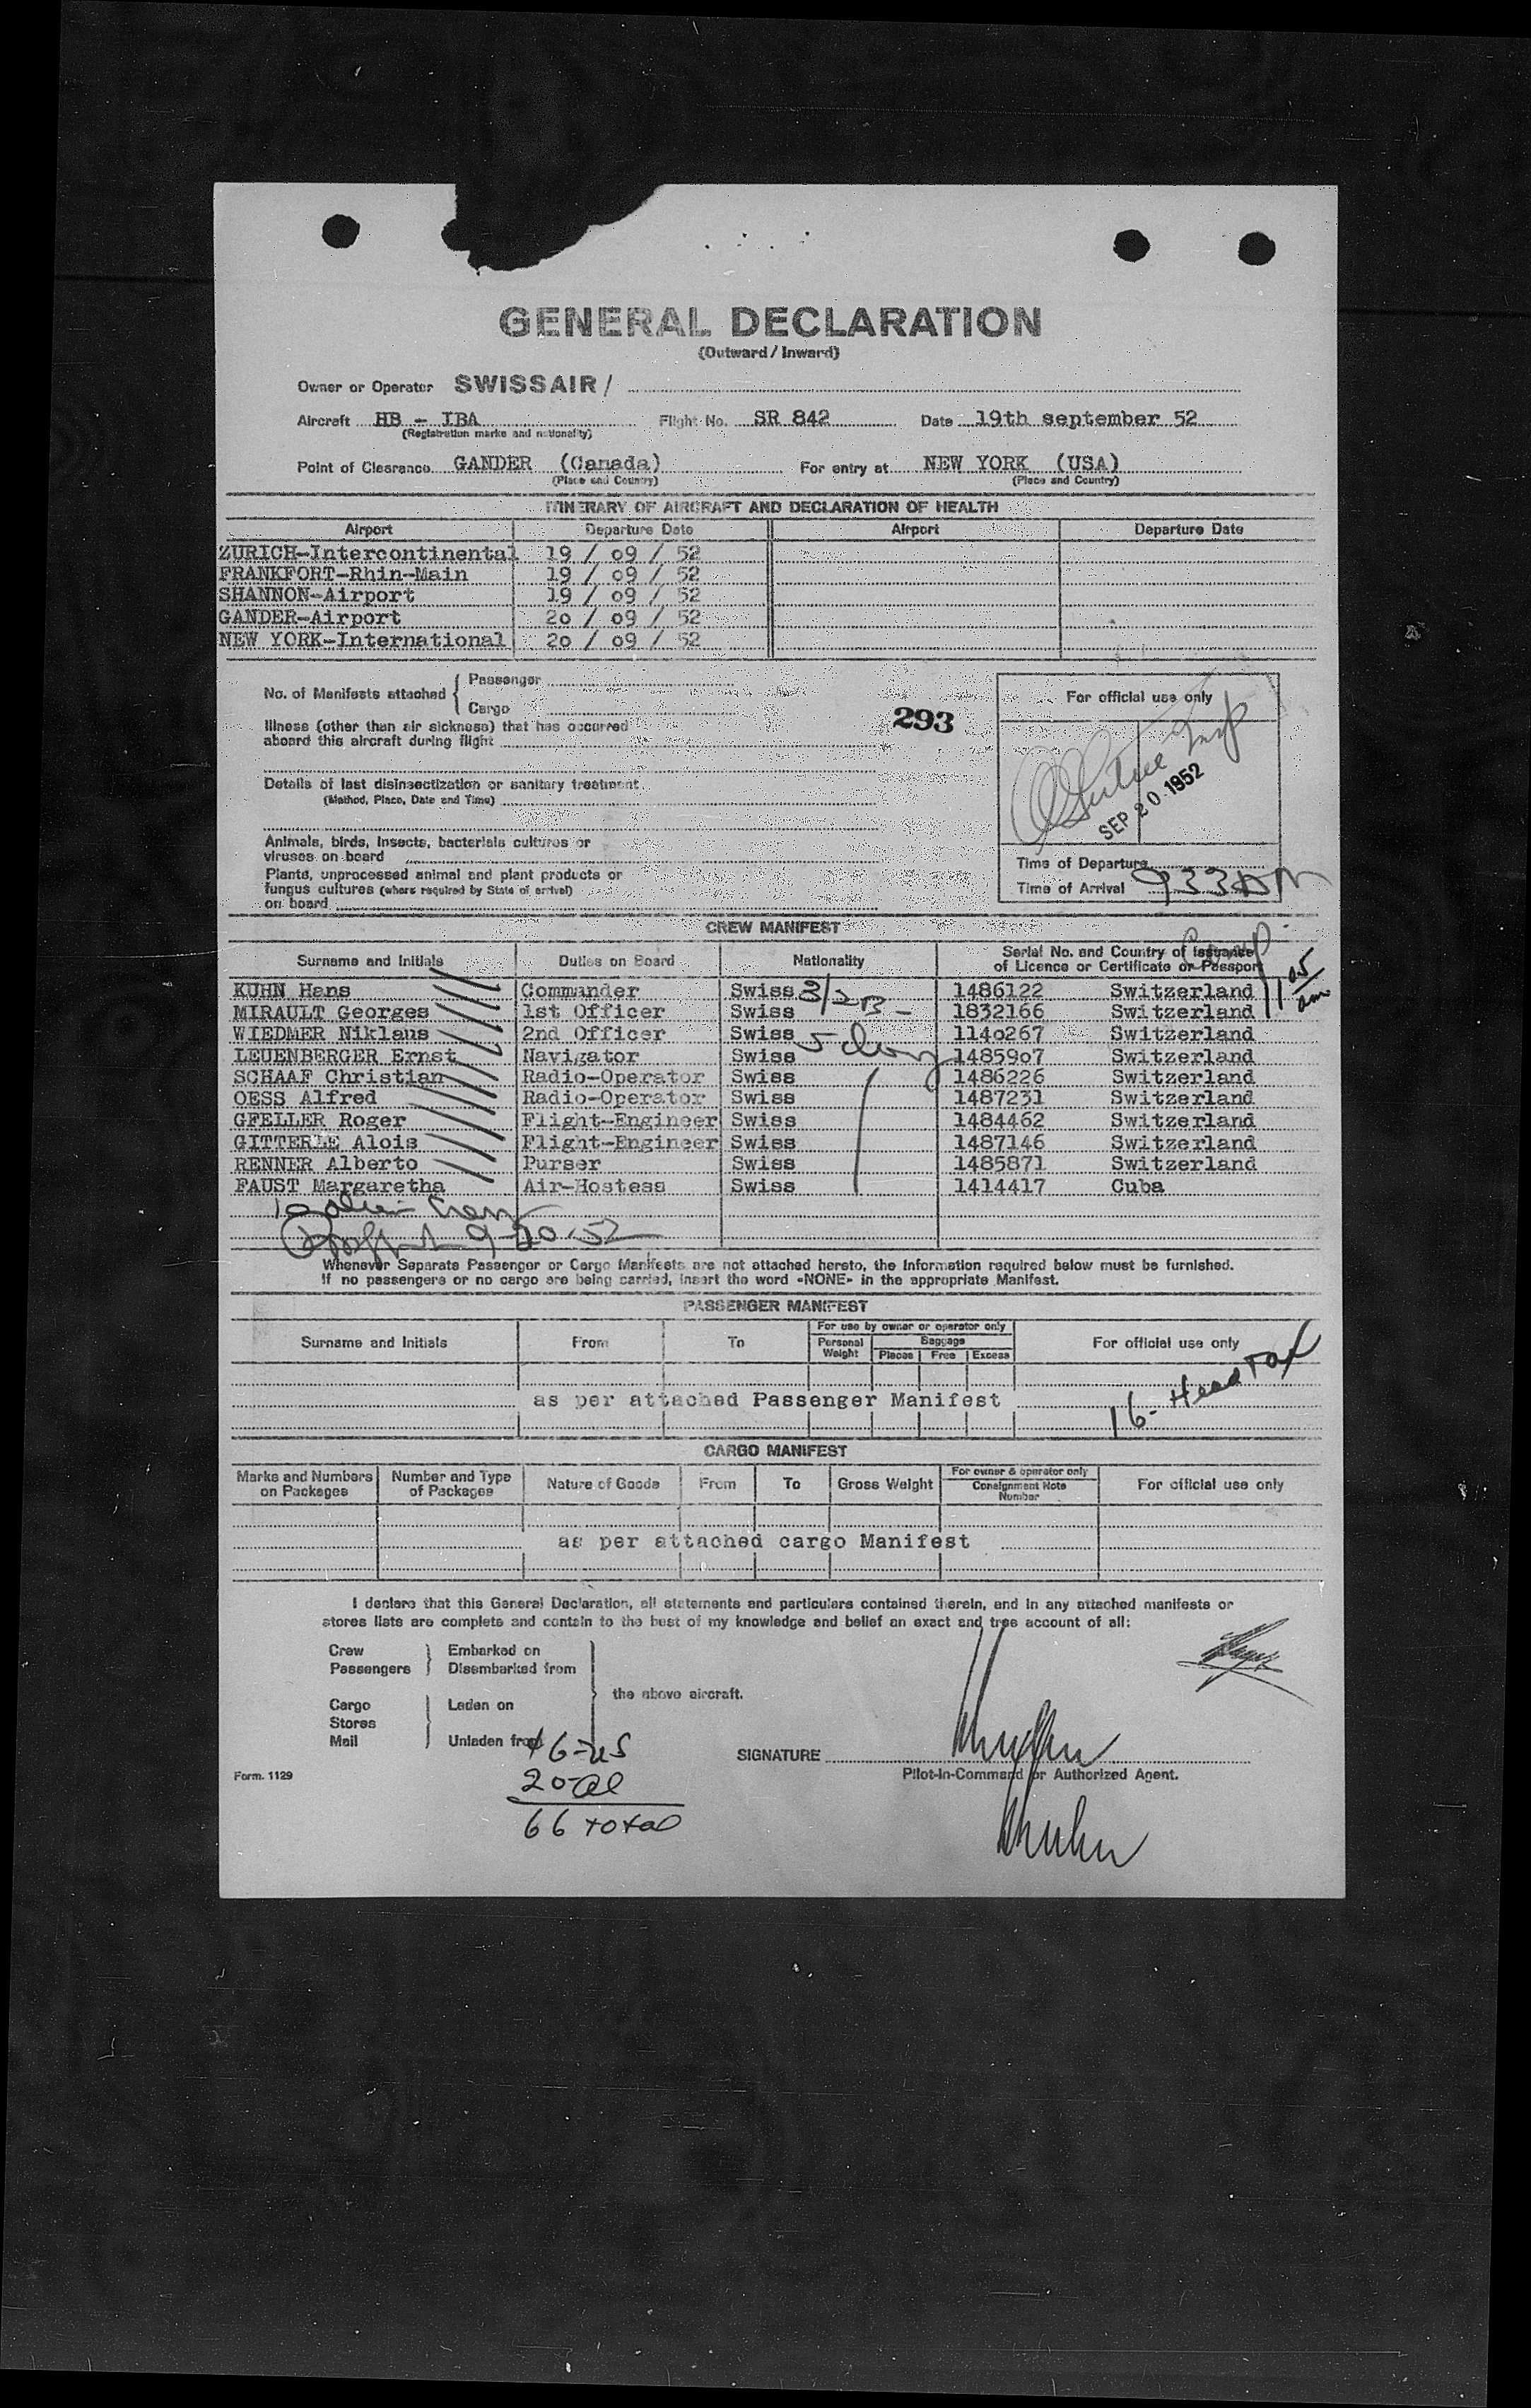 GENERAL DECLARATION
(Outward / Inward)
Owner or Operator SWISSAIR /
Aircraft HB - IBA Flight No. SR 842 Date 19th september 52
(Registration marks and nationality)
Point of Clearance GANDER (Canada) For entry at NEW YORK (USA)
(Place and Country) (Place and Country)
ITINERARY OF AIRCRAFT AND DECLARATION OF HEALTH
Airport Departure Date Airport Departure Date
ZURICH-Intercontinental 19 / 09 / 52
FRANKFORT-Rhin-Main 19 / 09 / 52
SHANNON-Airport 19 / 09 / 52
GANDER-Airport 20 / 09 / 52
NEW YORK-International 20 / 09 / 52
No. of Manifests attached { Passenger
Cargo
Illness (other than air sickness) that has occurred
aboard this aircraft during flight
Details of last disinsectization or sanitary treatment
(Method, Place, Date and Time)
Animals, birds, insects, bacterials cultures or
viruses on board
Plants, unprocessed animal and plant products or
fungus cultures (where required by State of arrival)
on board
293
For official use only
SEP 20 1952
Time of Departure
Time of Arrival 933 AM
CREW MANIFEST
Surname and Initials Duties on Board Nationality Serial No. and Country of Issuance
of Licence or Certificate or Passport
1105 am
KUHN Hans Commander Swiss 1486122 Switzerland
MIRAULT Georges 1st Officer Swiss 1832166 Switzerland
WIEDMER Niklaus 2nd Officer Swiss 1140267 Switzerland
LEUENBERGER Ernst Navigator Swiss 1485907 Switzerland
SCHAAF Christian Radio-Operator Swiss 1486226 Switzerland
OESS Alfred Radio-Operator Swiss 1487231 Switzerland
GFELLER Roger Flight-Engineer Swiss 1484462 Switzerland
GITTERLE Alois Flight-Engineer Swiss 1487146 Switzerland
RENNER Alberto Purser Swiss 1485871 Switzerland
FAUST Margaretha Air-Hostess Swiss 1414417 Cuba
10 alien Crew
9-20-52
Whenever Separate Passenger or Cargo Manifests are not attached hereto, the information required below must be furnished.
If no passengers or no cargo are being carried, insert the word «NONE» in the appropriate Manifest.
PASSENGER MANIFEST
Surname and Initials From To For use by owner or operator only For official use only
Personal Weight Baggage
Pieces Free Excess
as per attached Passenger Manifest
16- Head Tax
CARGO MANIFEST
Marks and Numbers on Packages Number and Type of Packages Nature of Goods From To Gross Weight For owner & operator only Consignment Note Number For official use only
as per attached cargo Manifest
I declare that this General Declaration, all statements and particulars contained therein, and in any attached manifests or
stores lists are complete and contain to the best of my knowledge and belief an exact and tree account of all:
Crew Embarked on
Passengers Disembarked from
the above aircraft.
Cargo Laden on
Stores
Mail Unladen from
46-US
20-al
66 total
SIGNATURE
Pilot-in-Command or Authorized Agent.
Form. 1129